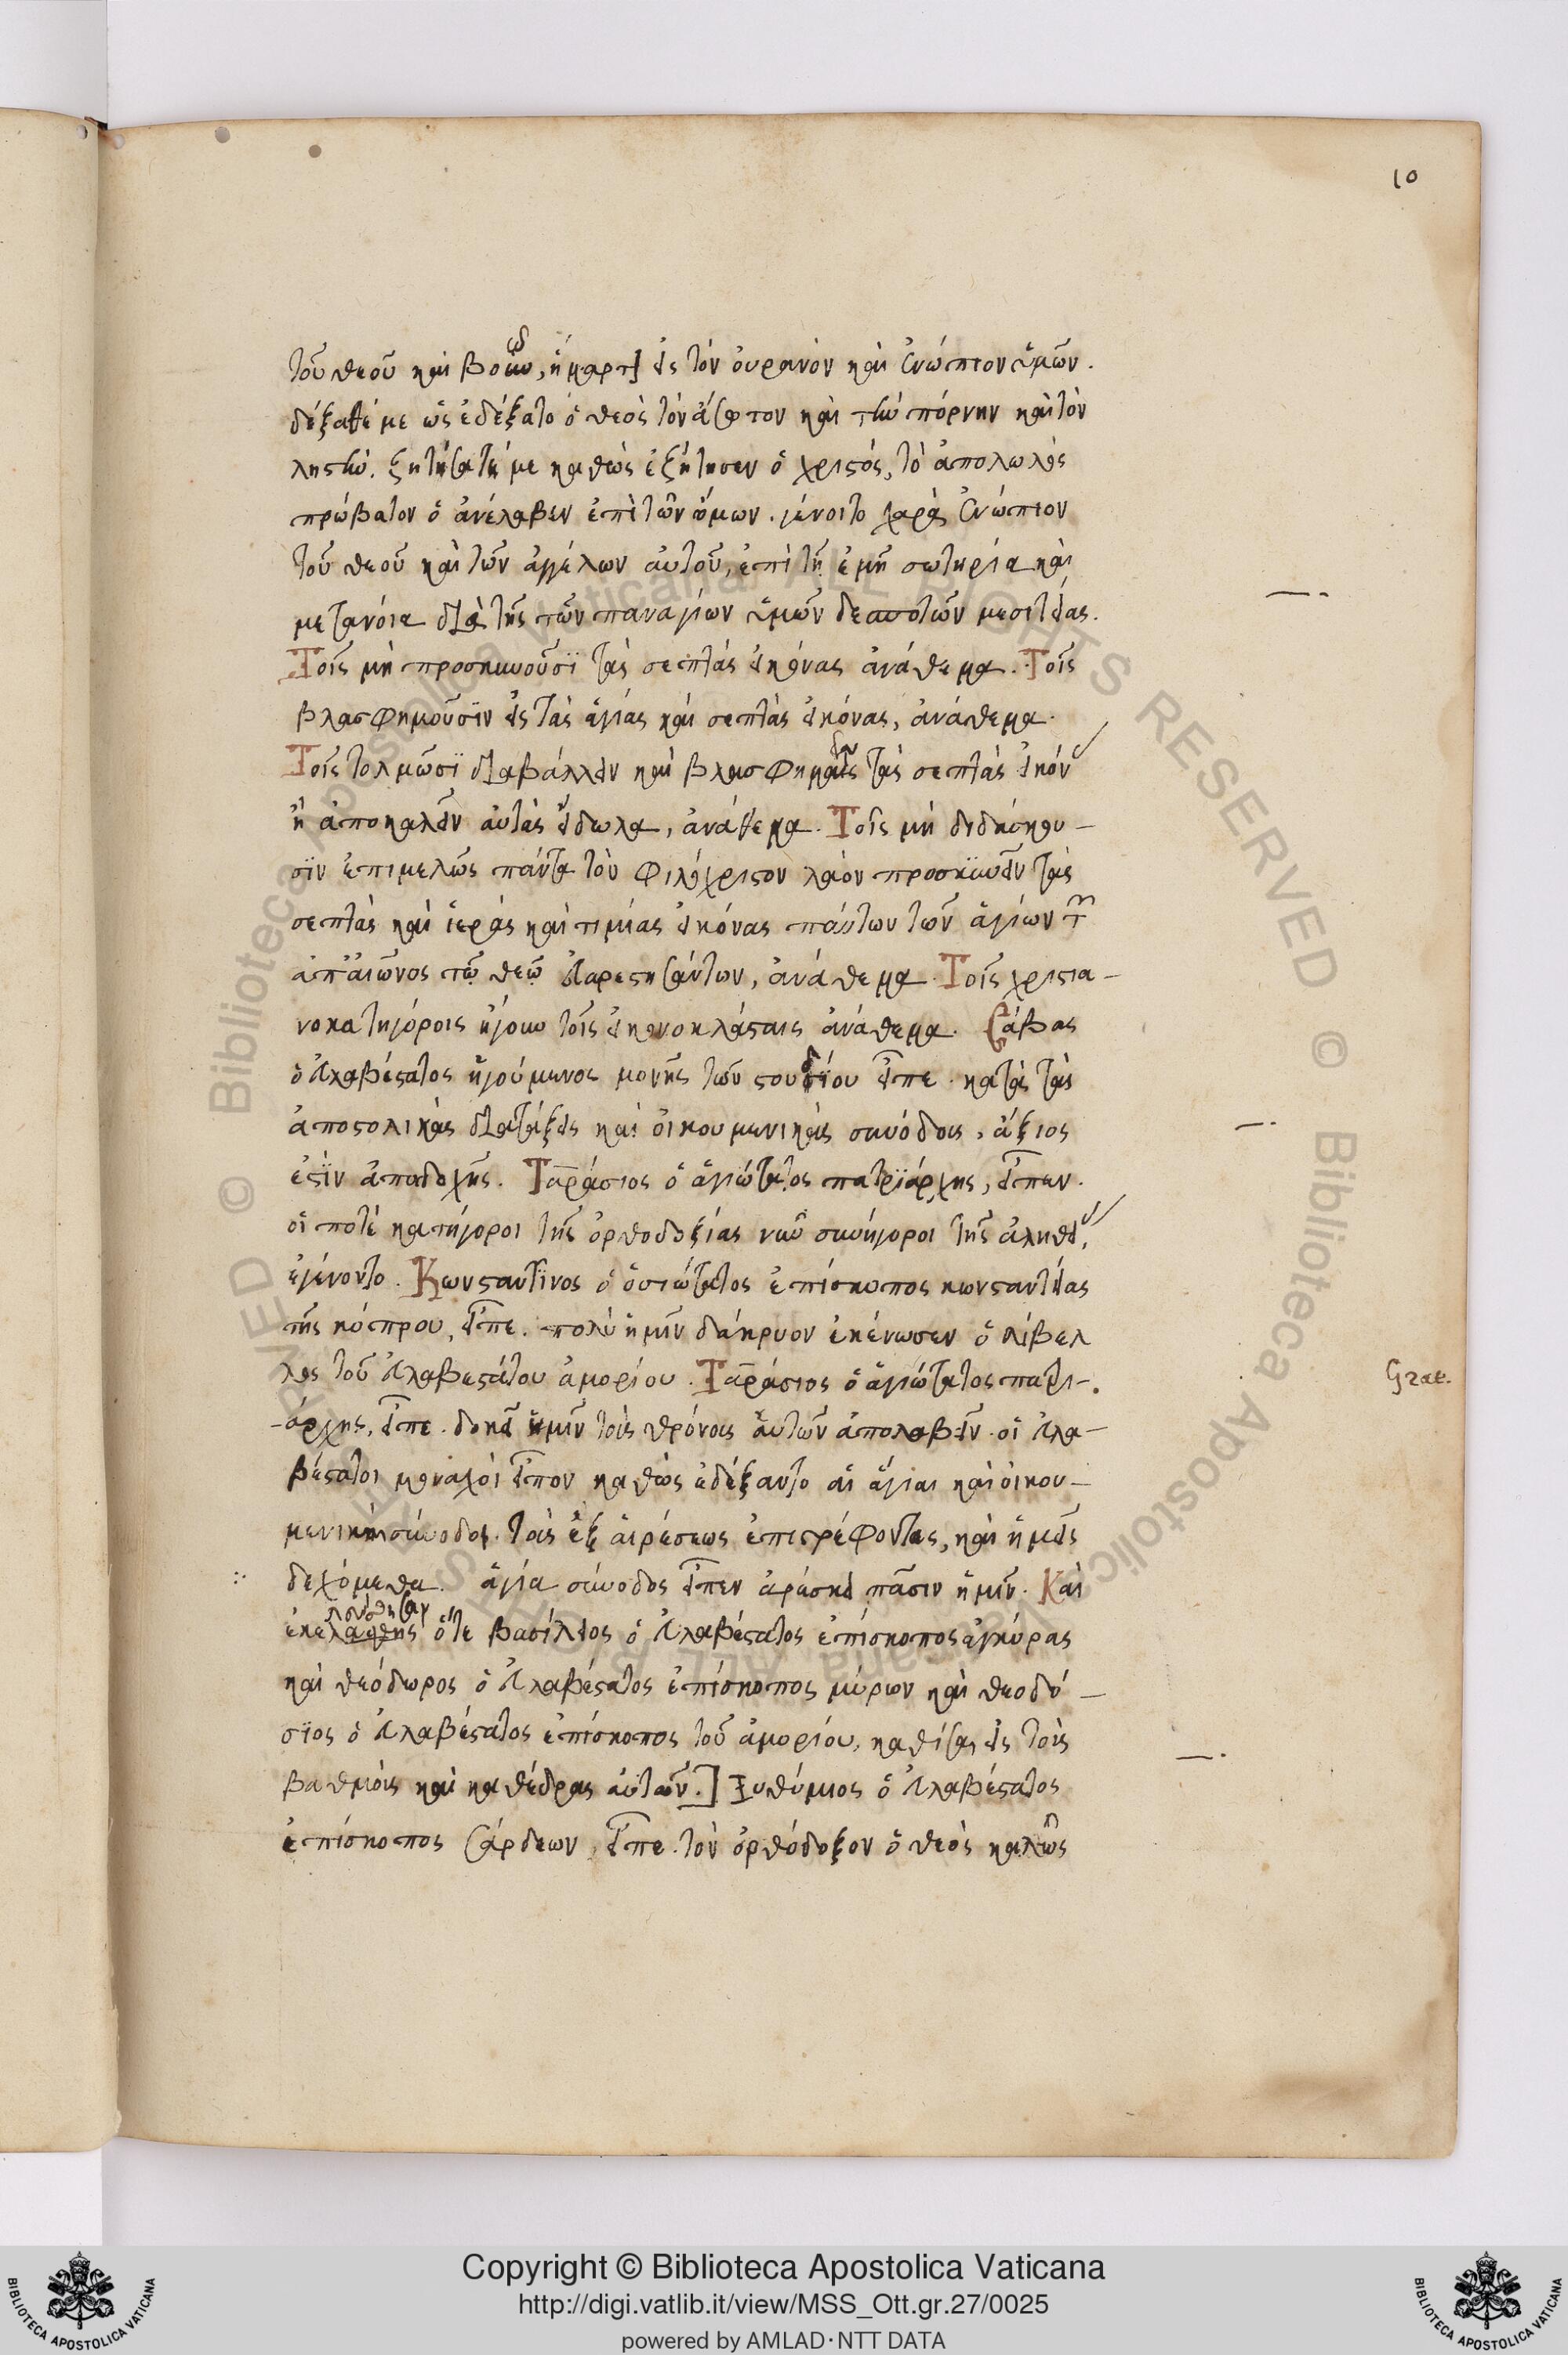 10
τοῦ θεοῦ καὶ βοῶ, ἥμαρτον εἰς τὸν οὐρανὸν καὶ ἐνώπιον ὑμῶν.
δέξασθέ με ὡς ἐδέξατο ὁ θεὸς τὸν ἄσωτον καὶ τὴν πόρνην καὶ τὸν
ληστὴν. ζητήσατέ με καθὼς ἐζήτησεν ὁ χριστός, τὸ ἀπολωλὸς
πρόβατον ὃ ἀνέλαβεν ἐπὶ τῶν ὤμων. γένοιτο χαρὰ ἐνώπιον
τοῦ θεοῦ καὶ τῶν ἀγγέλων αὐτοῦ, ἐπὶ τῇ ἐμῇ σωτηρία καὶ
μετανοία διὰ τῆς τῶν παναγίων ὑμῶν δεσποτῶν μεσιτείας.
Τοῖς μὴ προσκυνοῦσϊ τὰς σεπτὰς εἰκόνας ἀνάθεμα. Τοῖς
βλασφημοῦσϊν εἰς τὰς ἁγίας καὶ σεπτὰς εἰκόνας, ἀνάθεμα.
Τοῖς τολμῶσϊ διαβάλλειν καὶ βλασφημεῖν τὰς σεπτὰς εἰκόν
ἢ ἀποκαλεῖν αὐτὰς εἴδωλα, ἀνάθεμα. Τοῖς μὴ διδάσκου-
σϊν ἐπιμελῶς πάντα τὸν φιλόχριστον λαὸν προσκυνεῖν τὰς
σεπτὰς καὶ ἱερὰς καὶ τιμίας εἰκόνας πάντων τῶν ἁγίων τῶν
ἀπ' αἰῶνος τῷ θεῷ εὐαρεστησάντων, ἀνάθεμα. Τοῖς χριστια-
νοκατηγόροις ἤγουν τοῖς εἰκονοκλάσταις ἀνάθεμα. Σάβας
ὁ εὐλαβέστατος ἡγούμενος μονῆς τῶν στουδίου εἶπε. κατὰ τὰς
ἀποστολικὰς διατάξεις καὶ οἰκουμενικὰς συνόδους, ἄξιος
ἐστϊν ἀποδοχῆς. Ταράσιος ὁ ἁγιώτατος πατρϊάρχης, εἶπεν.
οἵ ποτὲ κατήγοροι τῆς ὀρθοδοξίας νῦν συνήγοροι τῆς ἀληθεί,
ἐγένοντο. Κωνσταντῖνος ὁ ὁσιώτατος ἐπίσκοπος κωνσταντείας
τῆς κύπρου, εἶπε. πολὺ ἡμῖν δάκρυον ἐκένωσεν ὁ λίβελ
λος τοῦ εὐλαβεστάτου ἀμορίου. Ταράσιος ὁ ἁγιώτατος πατρι-
άρχης, εἶπε. δοκεῖ ἡμῖν τοὺς θρόνους αὑτῶν ἀπολαβεῖν. οἱ εὐλα-
βέστατοι μοναχοὶ εἶπον καθὼς ἐδέξαντο αἱ ἅγιαι καὶ οἰκου-
μενικαὶ σύνοδοι. τοὺς ἐξ αἱρέσεως ἐπιστρέφοντας, καὶ ἡμεῖς
δεχόμεθα. ἁγία σύνοδος εἶπεν ἀρέσκει πᾶσιν ἡμῖν. Καὶ
ἐκελεύσθησαν ὅτε βασίλειος ὁ εὐλαβέστατος ἐπίσκοπος ἀγκύρας
καὶ θεόδωρος ὁ εὐλαβέστατος ἐπίσκοπος μύρων καὶ θεοδό-
σϊος ὁ εὐλαβέστατος ἐπίσκοπος τοῦ ἀμορίου, καθίσαι εἰς τοὺς
βαθμοὺς καὶ καθέδρας αὐτῶν.] Εὐθύμιος ὁ εὐλαβέστατος
ἐπίσκοπος σάρδεων, εἶπε. τὸν ὀρθόδοξον ὁ θεὸς καλῶς
Grae.
Copyright © Biblioteca Apostolica Vaticana
http://digi.vatlib.it/view/MSS_Ott.gr.27/0025
powered by AMLAD·NTT DATA
BIBLIOTECA APOSTOLICA VATICANA
BIBLIOTECA APOSTOLICA VATICANA